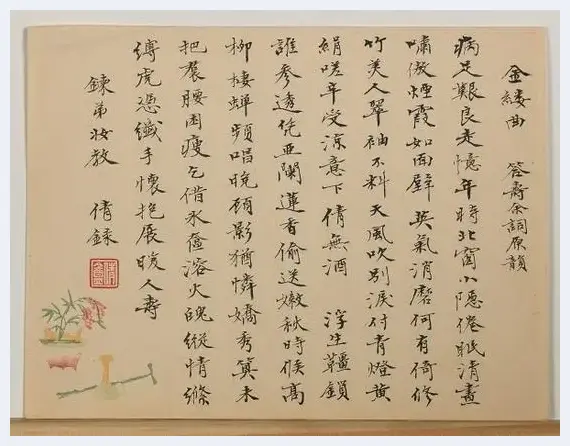 金縷曲 答壽余詞原韻
病足艱良走憶年時北窗小隱倦眠清晝
嘯傲煙霞如面壁英氣消磨何有倚修
竹美人翠袖不料天風吹別淚付青燈黃
絹嗟年受涼意下倩無酒 浮生韁鎖
誰參透凭亞闌蓮香偷送嫩秋時候高
柳棲蟬頻唱晚顧影猶憐嬌秀算未
把裠腰困瘦乞借冰奩溶火魄縱情絛
縛虎憑纖手懷抱展暖人壽
鍊弟妝教 倩鍊